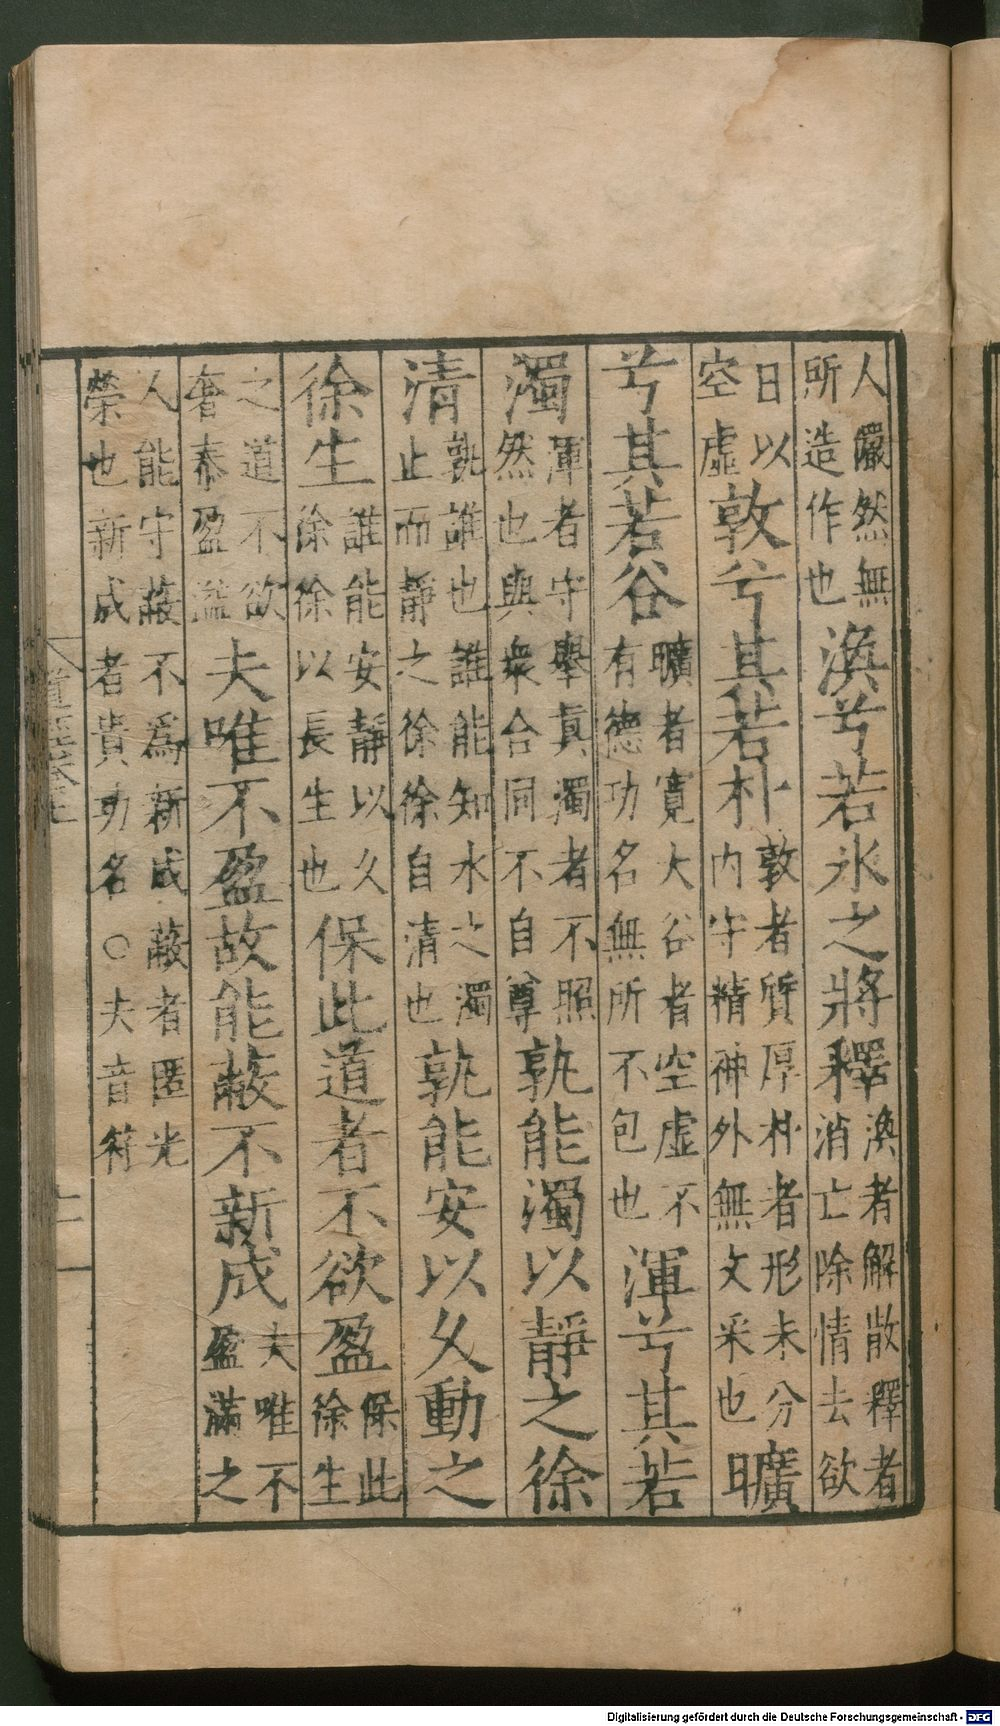 人儼然無所造作也渙兮若氷之將釋渙者解散釋者消亡除情去欲
日以空虛敦兮其若朴敦者質厚朴者形未分內守精神外無文采也曠
兮其若谷曠者寬大谷者空虛不有德功名無所不包也渾兮其若
濁渾者守舉真濁者不照然也與衆合同不自尊孰能濁以靜之徐
清孰誰也誰能知水之濁止而靜之徐徐自清也孰能安以久動之
徐生誰能安靜以久徐徐以長生也保此道者不欲盈保此徐生
之道不欲奢泰盈溢夫唯不盈故能蔽不新成夫唯不盈滿之
人能守蔽不為新成蔽者匿光榮也新成者貴功名○夫音符
Digitalisierung gefördert durch die Deutsche Forschungsgemeinschaft - DFG